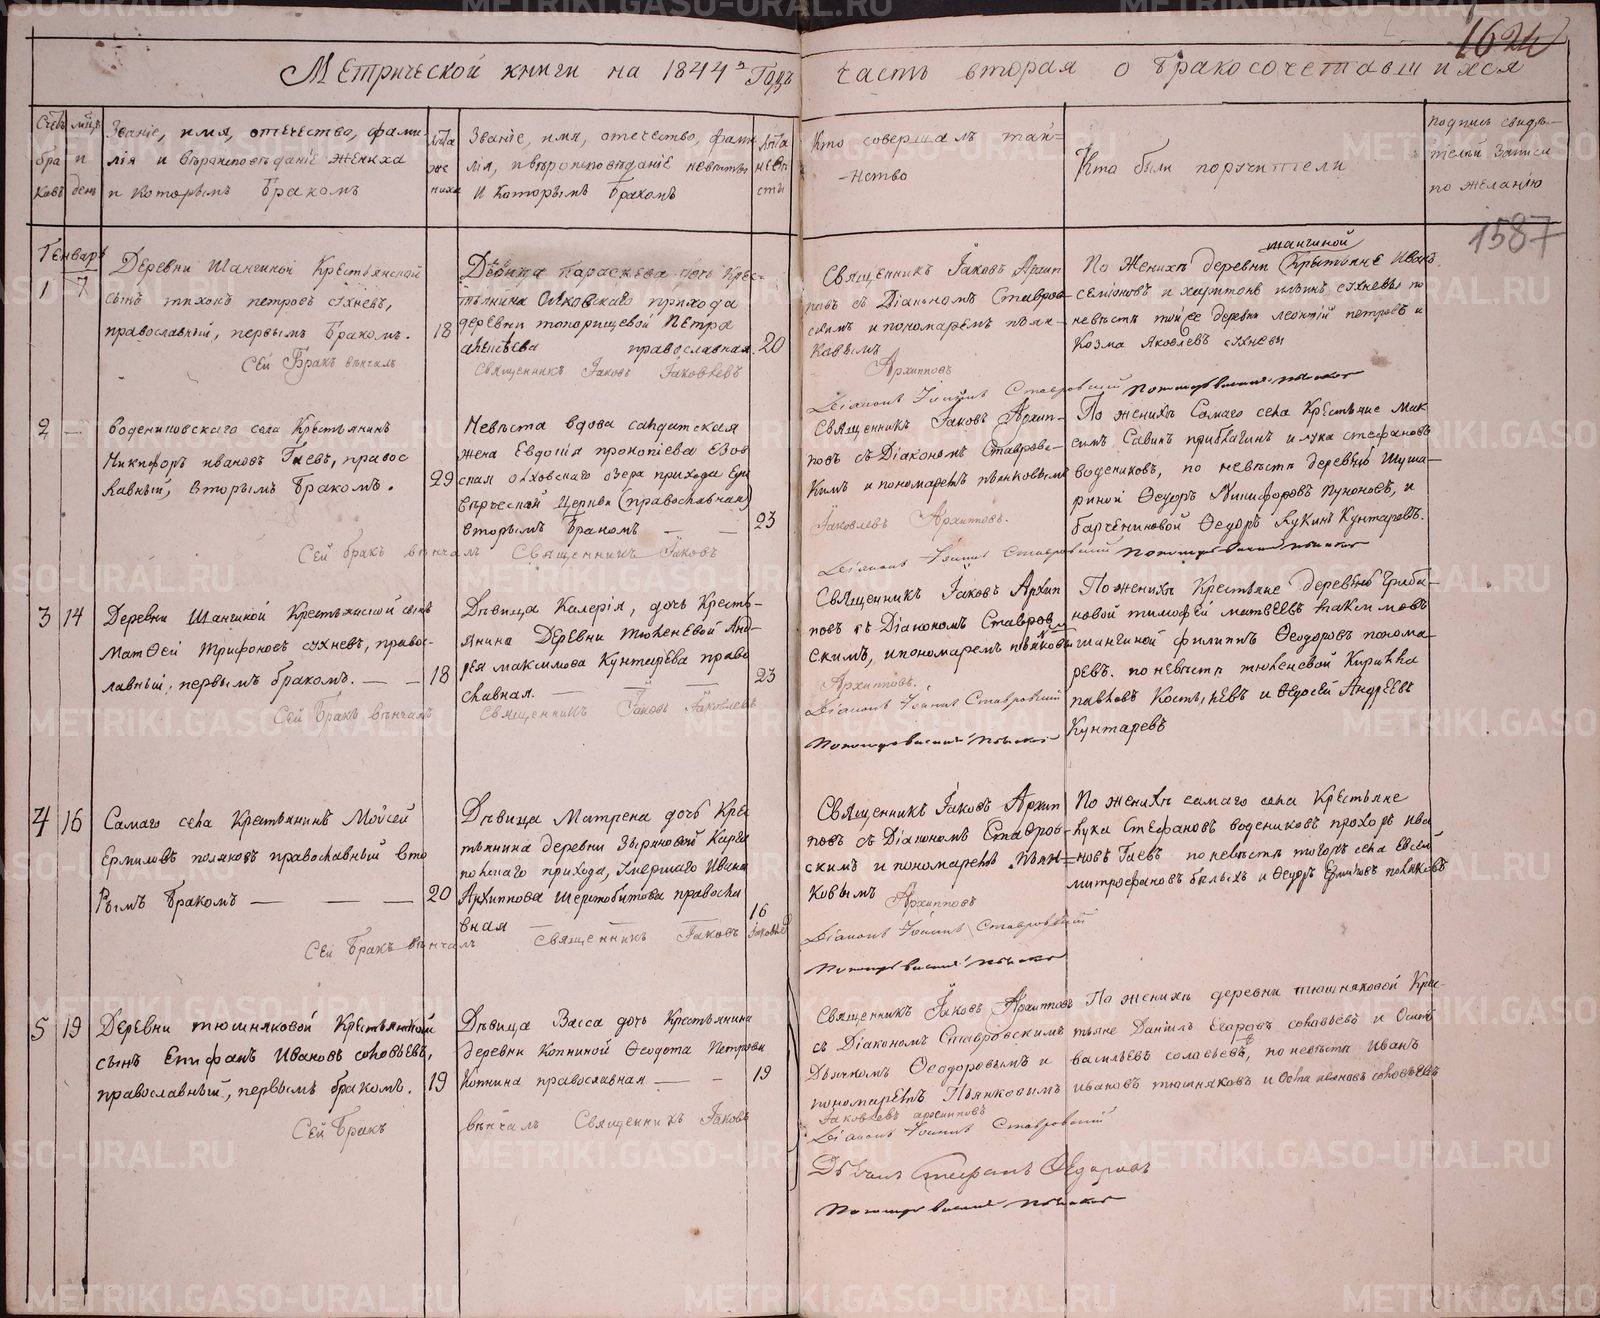 162
Метрической книги на 1844й Годъ часть вторая о бракосочетавшихся
Счетъ браковъ
Мѣсяцъ и день
Званіе, имя, отечество, фами-
лія и вѣроисповѣданіе жениха
и которымъ бракомъ
Лѣта жениха
Званіе, имя, отечество, фами
лія, и вѣроисповѣданіе невѣсты
и которымъ бракомъ
Лѣта невѣсты
Кто совершалъ таин-
-нство
Кто были поручители
подпись свидѣ-
телей записи
по желанію
1587
Генварь
1 7
Деревни Шангиной Крестьянской
сынъ тихонъ петровъ сухневъ,
православный, первымъ бракомъ. 18
Дѣвица параскева дочь крес-
тьянина Ольховскаго прихода
деревни топорищевой Петра
православная. 20
Сей бракъ вѣнчалъ Священникъ Іаковъ Іаковлевъ
Священникъ Іаковъ Архип
повъ съ Діакономъ Ставров-
скимъ и пономаремъ пьян-
ковымъ
Архипповъ
Діаконъ Іоаннъ Ставровский
шангиной
По Женихѣ деревни Крестьяне Иванъ
семіоновъ и харитонъ сухневы по
невѣстѣ той же деревни леонтій петровъ и
Козма Яковлевъ сухневы
2 —
водениковскаго села Крестьянинъ
Никифоръ ивановъ Гаевъ, правос
лавный, вторымъ бракомъ. 29
Невѣста вдова салдатская
жена Евдокія прокопіева
ольховскаго озера прихода Еди
вѣрческой Церкви (православная)
вторымъ бракомъ — — 23
Сей бракъ вѣнчалъ Священникъ Іаковъ
Священникъ Іаковъ Архип-
повъ съ Діакономъ Ставровс-
кимъ и пономаремъ пьянковымъ
Іаковлевъ Архипповъ.
Діаконъ Іоаннъ Ставровский
По женихѣ Самаго села Крестьяне Мак
симъ Савинъ и лука стефановъ
водениковъ, по невѣстѣ деревень Шуша-
риной Ѳедоръ Никифоровъ и
Ѳедоръ Лукинъ Кунгаревъ.
3 14
Деревни Шангиной Крестьянской сынъ
Матѳей Трифоновъ сухневъ, правос-
лавный, первымъ бракомъ. — — 18
Дѣвица Калерія, дочь Кресть-
янина Деревни тюленевой Анд-
рея максимова Кунгарева право
славная. — — 23
Сей бракъ вѣнчалъ Священникъ Іаковъ Іаковлевъ
Священникъ Іаковъ Архип
повъ съ Діакономъ Ставров
скимъ, и пономаремъ пьянковымъ
Архипповъ.
Діаконъ Іоаннъ Ставровский
По женихѣ Крестьяне деревень Гриба-
новой тимофей матвеевъ
шангиной филиппъ Ѳеодоровъ понома-
ревъ. по невѣстѣ тюленевой Кирилла
павловъ и Ѳедосей Андреевъ
Кунгаревъ
4 16
Самаго села Крестьянинъ Мойсей
Ермиловъ поляковъ православный вто
рымъ бракомъ — — — 20
Дѣвица Матрена дочь Кре
стьянина деревни Зыряновой Карга
польскаго прихода, умершаго Ивана
Архиппова Шерстобитова правосла
вная 16
Сей бракъ вѣнчалъ Священникъ Іаковъ Іаковлев
Священникъ Іаковъ Архип
повъ съ Діакономъ Ставров-
скимъ и пономаремъ пьян-
ковымъ Архипповъ
Діаконъ Іоаннъ Ставровский
По женихѣ самаго села Крестьяне
лука Стефановъ водениковъ прохоръ ива
новъ Гаевъ по невѣстѣ тогожъ села Евсей
митрофановъ бѣлыхъ и Ѳедоръ Ермиловъ поляковъ
5 19
Деревни тюшняковой Крестьянской
сынъ Епифанъ Ивановъ соловьевъ,
православный, первымъ бракомъ. 19
Дѣвица Васса дочь Крестьянина
деревни Копниной Ѳеодота Петрова
Копнина православная — — 19
Сей бракъ вѣнчалъ Священникъ Іаковъ
Священникъ Іаковъ Архипповъ
съ Діакономъ Ставровскимъ
Дьячкомъ Ѳеодоровымъ и
пономаремъ Пьянковымъ
Іаковлевъ архипповъ
Діаконъ Іоаннъ Ставровский
Дьячокъ Стефанъ Ѳедоровъ
По женихѣ деревни тюшняковой Крес-
тьяне Даніилъ соловьевъ и Осипъ
васильевъ соловьевъ, по невѣстѣ Иванъ
ивановъ тюшняковъ и ивановъ соловьевъ